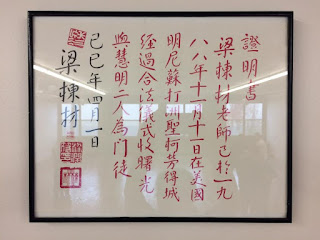 證明書
梁棟材老師已於一九
八八年十一月十一日在美國
明尼蘇打洲聖柯芳得城
經過合法儀式收曙光
與慧明二人為門徒
己巳年四月一日
梁棟材